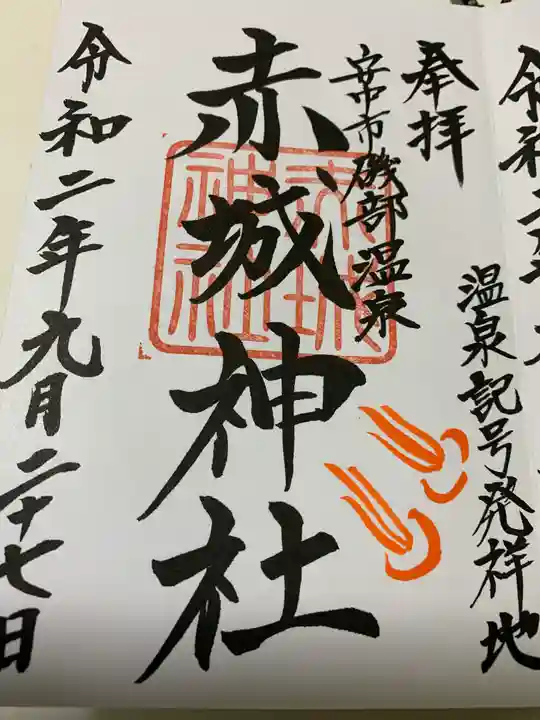 奉拝
温泉記号発祥地
安中市磯部温泉
赤城神社
令和二年九月二十七日